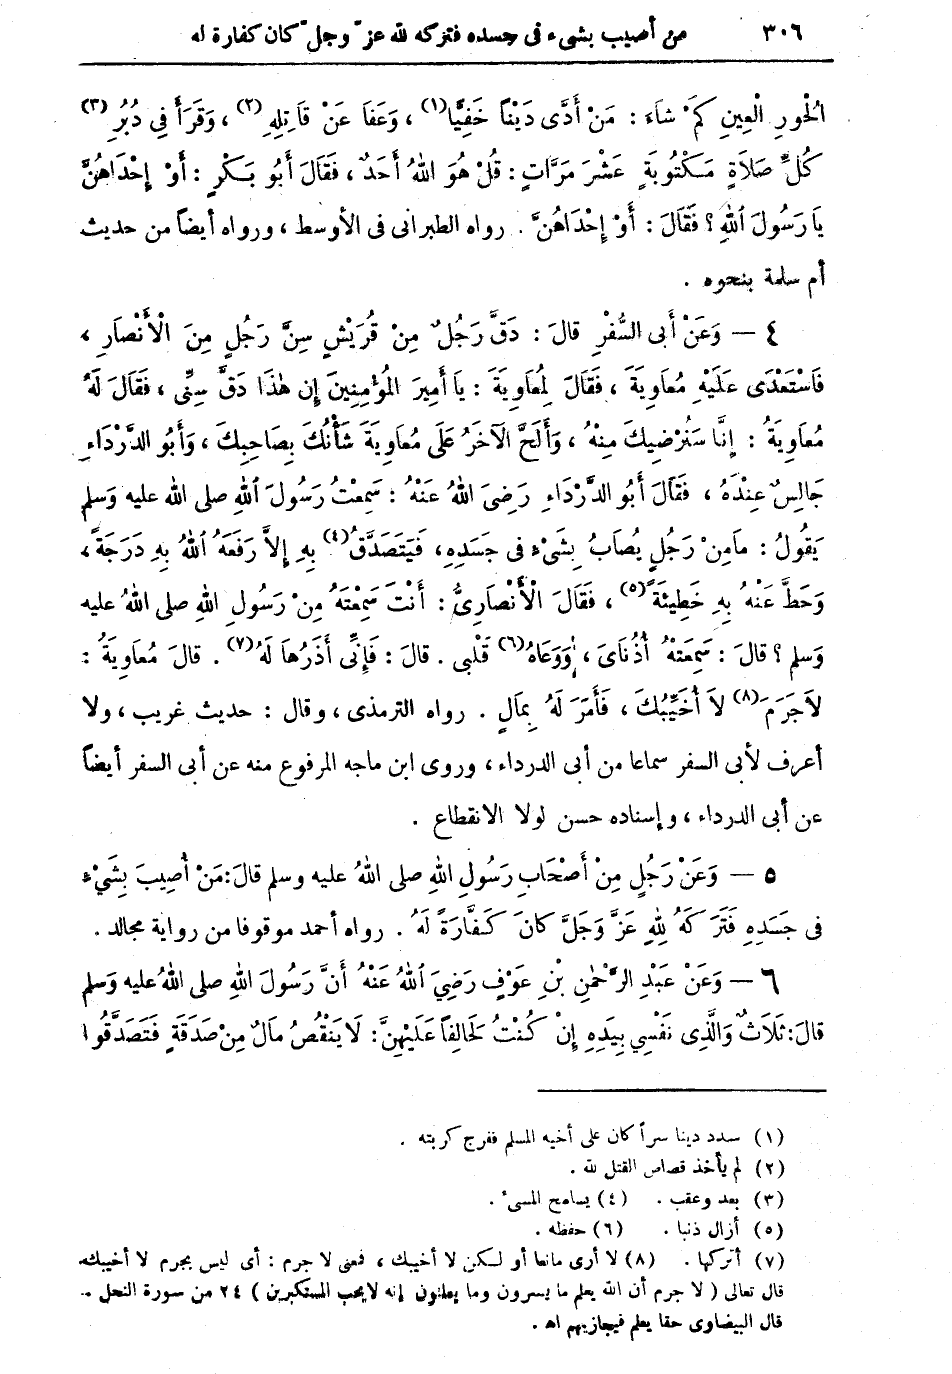 ٣٠٦ من أصيب بشىء فى جسده فتركه لله عزّ وجلّ كان كفارة له
الْحُورِ الْعِينِ كَمْ شَاءَ : مَنْ أَدَّى دَيْناً خَفِيًّا(١) ، وَعَفَا عَنْ قَاتِلِهِ(٢) ، وَقَرَأَ فِى دُبُرِ(٣)
كُلِّ صَلَاةٍ مَكْتُوبَةٍ عَشْرَ مَرَّاتٍ : قُلْ هُوَ اللهُ أَحَدٌ ، فَقَالَ أَبُو بَكْرٍ : أَوْ إِحْدَاهُنَّ
يَا رَسُولَ اللهِ ؟ فَقَالَ : أَوْ إِحْدَاهُنَّ . رواه الطبرانى فى الأوسط ، ورواه أيضاً من حديث
أم سلمة بنحوه .
٤ — وَعَنْ أَبِى السَّفْرِ قَالَ : دَقَّ رَجُلٌ مِنْ قُرَيْشٍ سِنَّ رَجُلٍ مِنَ الْأَنْصَارِ ،
فَاسْتَعْدَى عَلَيْهِ مُعَاوِيَةَ ، فَقَالَ لِمُعَاوِيَةَ : يَا أَمِيرَ الْمُؤْمِنِينَ إِن هٰذَا دَقَّ سِنِّى ، فَقَالَ لَهُ
مُعَاوِيَةُ : إِنَّا سَنُرْضِيكَ مِنْهُ ، وَأَلَحَّ الآخَرُ عَلَى مُعَاوِيَةَ شَأْنُكَ بِصَاحِبِكَ ، وَأَبُو الدَّرْدَاءِ
جَالِسٌ عِنْدَهُ ، فَقَالَ أَبُو الدَّرْدَاءِ رَضِىَ اللهُ عَنْهُ : سَمِعْتُ رَسُولَ اللهِ صلى الله عليه وَسلم
يَقُولُ : مَامِنْ رَجُلٍ يُصَابُ بِشَىْءٍ فِى جَسَدِهِ ، فَيَتَصَدَّقُ(٤) بِهِ إِلاَّ رَفَعَهُ اللهُ بِهِ دَرَجَةً ،
وَحَطَّ عَنْهُ بِهِ خَطِيئَةً(٥) ، فَقَالَ الْأَنْصَارِىُّ : أَنْتَ سَمِعْتَهُ مِنْ رَسُولِ اللهِ صلى اللهُ عليه
وَسلم ؟ قالَ : سَمِعَتْهُ أُذُنَاىَ ، وَوَعَاهُ(٦) قَلْبِى . قالَ : فَإِنِّى أَذَرُهَا لَهُ(٧) . قالَ مُعَاوِيَةُ :
لاَجَرَمَ(٨) لاَ أُخَيِّبُكَ ، فَأَمَرَ لَهُ بِمَالٍ . رواه الترمذى ، وقال : حديث غريب ، ولا
أعرف لأبى السفر سماعا من أبى الدرداء ، وروى ابن ماجه المرفوع منه عن أبى السفر أيضاً
عن أبى الدرداء ، وإسناده حسن لولا الانقطاع .
٥ — وَعَنْ رَجُلٍ مِنْ أَصْحَابِ رَسُولِ اللهِ صلى اللهُ عليه وسلم قالَ : مَنْ أُصِيبَ بِشَىْءٍ
فِى جَسَدِهِ فَتَرَكَهُ لِلهِ عَزَّ وَجَلَّ كانَ كَفَّارَةً لَهُ . رواه أحمد موقوفا من رواية مجالد .
٦ — وَعَنْ عَبْدِ الرَّحْمٰنِ بْنِ عَوْفٍ رَضِىَ اللهُ عَنْهُ أَنَّ رَسُولَ اللهِ صلى اللهُ عليه وَسلم
قالَ : ثَلَاثٌ وَالَّذِى نَفْسِي بِيَدِهِ إِنْ كُنْتُ لَحَالِفاً عَلَيْهِنَّ : لَا يَنْقُصُ مَالٌ مِنْ صَدَقَةٍ فَتَصَدَّقُوا
(١) سدد دينا سراً كان على أخيه المسلم ففرج كربته .
(٢) لم يأخذ قصاص القتل لله .
(٣) بعد وعقب . (٤) يسامح المسىء .
(٥) أزال ذنبا . (٦) حفظه .
(٧) أتركها . (٨) لا أرى مانعا أو لكن لا أخيبك ، فمعنى لا جرم : أى ليس بجرم لا أخيبك.
قال تعالى ( لا جرم أن الله يعلم ما يسرون وما يعلنون إنه لايحب المستكبرين ) ٢٤ من سورة النحل .
قال البيضاوى حقا يعلم فيجازيهم اه .